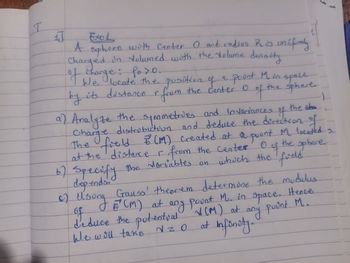 Exo 1
A sphere with center O and radius R is uniformly
charged in volumed with the volume density
of charge: ρ₀>0.
We locate the position of a point M in space
by its distance r from the center O of the sphere
a) Analyze the symmetries and invariances of the
charge distribution and deduce the direction of
The field E⃗(M) created at a point M located
at the distance r from the center O of the sphere
b) Specify the variables on which the field
depends.
c) Using Gauss' theorem determine the modulus
of E⃗(M) at any point M in space. Hence
deduce the potential V(M) at any point M.
We will take V=0 at infinity.